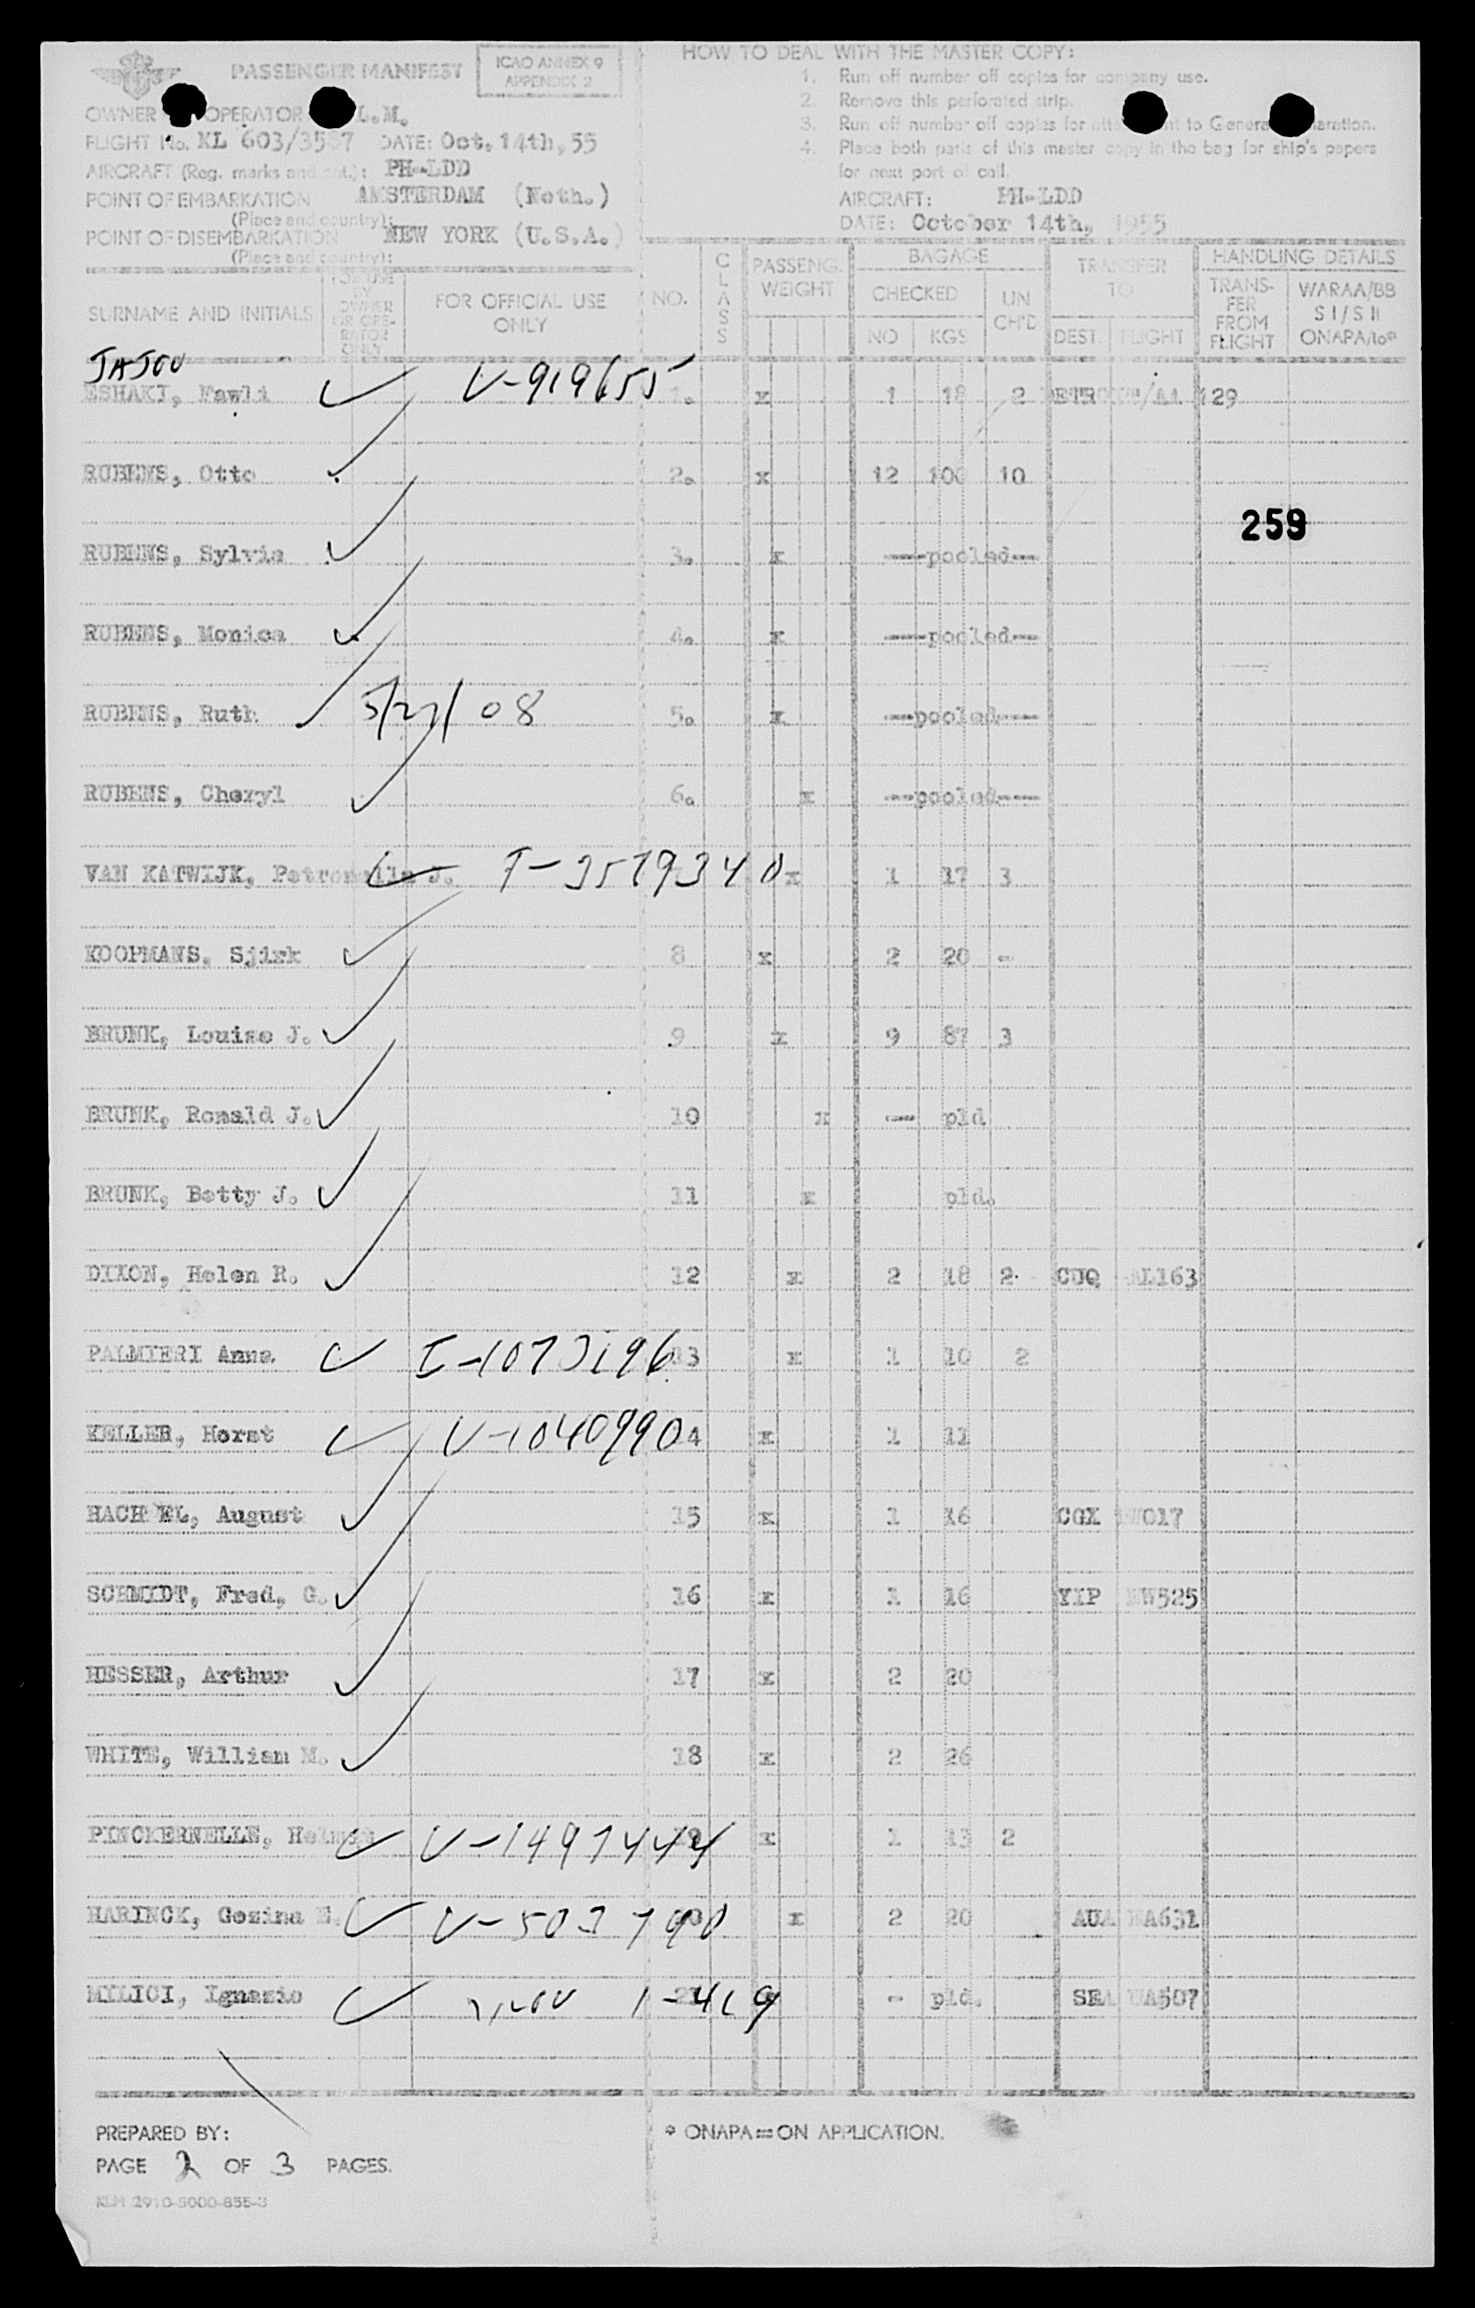 PASSENGER MANIFEST
ICAO ANNEX 9
APPENDIX 2
OWNER OPERATOR L.M.
FLIGHT No. KL 603/35 7 DATE: Oct. 14th, 55
AIRCRAFT (Reg. marks and nat.): PH-LDD
POINT OF EMBARKATION AMSTERDAM (Neth.)
(Place and country):
POINT OF DISEMBARKATION NEW YORK (U.S.A.)
(Place and country):
HOW TO DEAL WITH THE MASTER COPY:
1. Run off number off copies for company use.
2. Remove this perforated strip.
3. Run off number off copies for to General
4. Place both parts of this master copy in the bag for ship's papers
for next port of call.
AIRCRAFT: PH-LDD
DATE: October 14th, 1955
SURNAME AND INITIALS
FOR USE BY OWNER OR OPERATOR ONLY
FOR OFFICIAL USE ONLY
NO.
CLASS
PASSENG. WEIGHT
BAGAGE
CHECKED
NO KGS
UN CH'D
TRANSFER TO
DEST. FLIGHT
HANDLING DETAILS
TRANSFER FROM FLIGHT
WARAA/BB
S I / S II
ONAPA/to*
JAJOU
ESHAKI, Fawzi V-919655 1. x 1 18 2 DTR /AA 129
RUBENS, Otto 2. x 12 100 10
259
RUBENS, Sylvia 3. x ----pooled---
RUBENS, Monica 4. x ----pooled---
RUBENS, Ruth 5/27/08 5. x ---pooled----
RUBENS, Cheryl 6. x ---pooled----
VAN KATWIJK, Petronella J. T-3579340 x 1 17 3
KOOPMANS, Sjirk 8 x 2 20 -
BRUNK, Louise J. 9 x 9 87 3
BRUNK, Ronald J. 10 x --- pld
BRUNK, Betty J. 11 x pld.
DIXON, Helen R. 12 x 2 18 2 CUQ AL163
PALMIERI Anna I-1073196 13 x 1 10 2
KELLER, Horst V-1040990 14 x 1 11
HACH EL, August 15 x 1 16 CGX 017
SCHMIDT, Fred, G. 16 x 1 16 YIP NW525
HESSER, Arthur 17 x 2 20
WHITE, William M. 18 x 2 26
PINCKERNELLE, V-1497444 19 x 1 13 2
HARINCK, Gezina E. V-503790 20 x 2 20 AUA EA631
MILICI, Ignazio - pld. SEA UA507
PREPARED BY:
PAGE 2 OF 3 PAGES.
KLM 2910-5000-855-3
* ONAPA = ON APPLICATION.